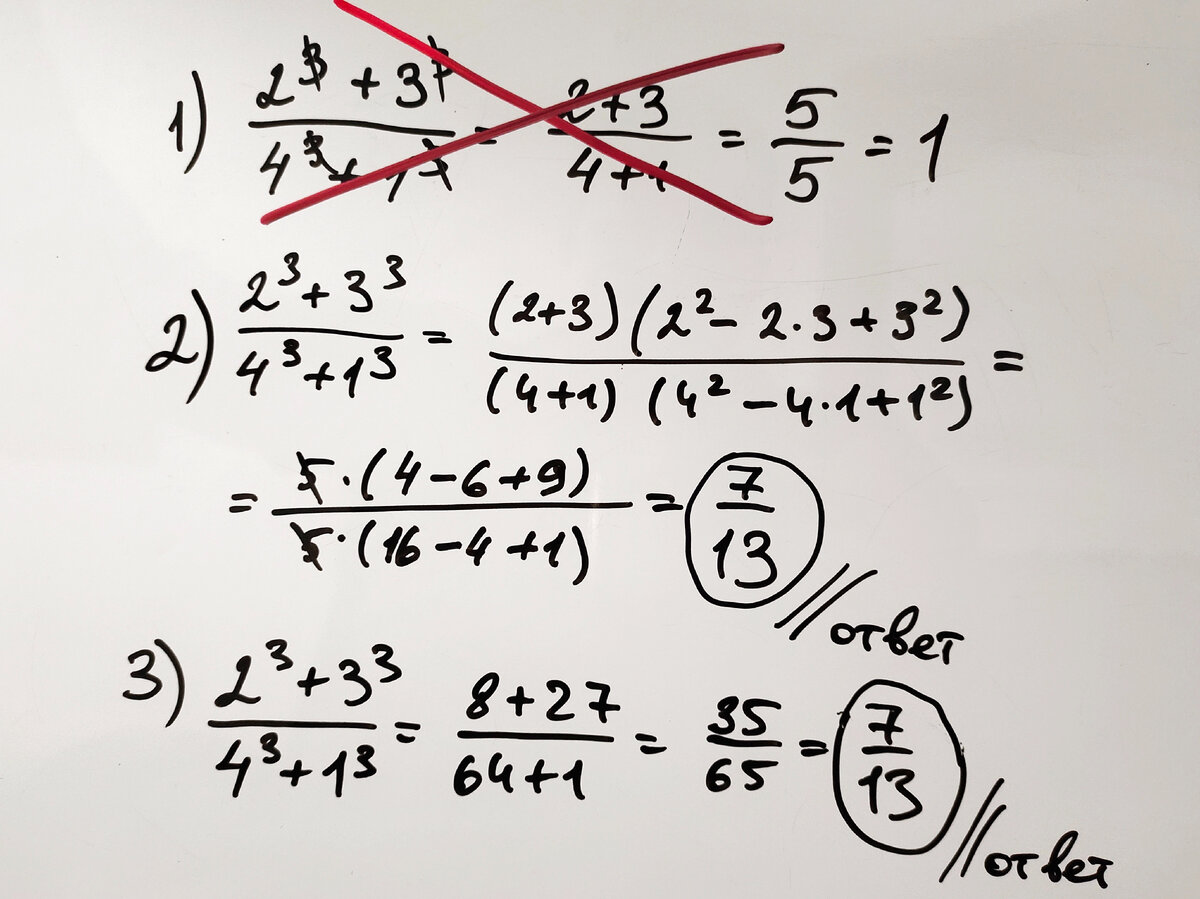 1) (2³ + 3³)/(4³ + 1³) = (2+3)/(4+1) = 5/5 = 1
2) (2³+3³)/(4³+1³) = ((2+3)(2²-2·3+3²))/((4+1)(4²-4·1+1²)) =
= (5·(4-6+9))/(5·(16-4+1)) = 7/13 // ответ
3) (2³+3³)/(4³+1³) = (8+27)/(64+1) = 35/65 = 7/13 // ответ